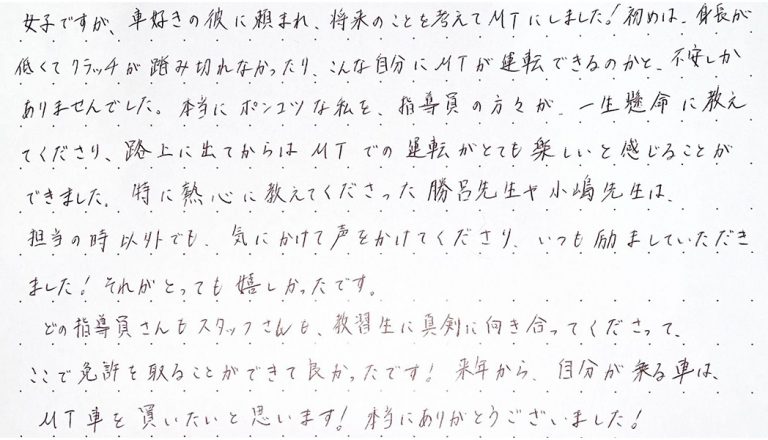 女子ですが、車好きの彼に頼まれ、将来のことを考えてMTにしました！初めは、身長が
低くてクラッチが踏み切れなかったり、こんな自分にMTが運転できるのかと、不安しか
ありませんでした。本当にポンコツな私を、指導員の方々が、一生懸命に教え
てくださり、路上に出てからはMTでの運転がとても楽しいと感じることが
できました。特に熱心に教えてくださった勝呂先生や小嶋先生は、
担当の時以外でも、気にかけて声をかけてくださり、いつも励ましていただき
ました！それがとっても嬉しかったです。
どの指導員さんもスタッフさんも、教習生に真剣に向き合ってくださって、
ここで免許を取ることができて良かったです！来年から、自分が乗る車は、
MT車を買いたいと思います！本当にありがとうございました！